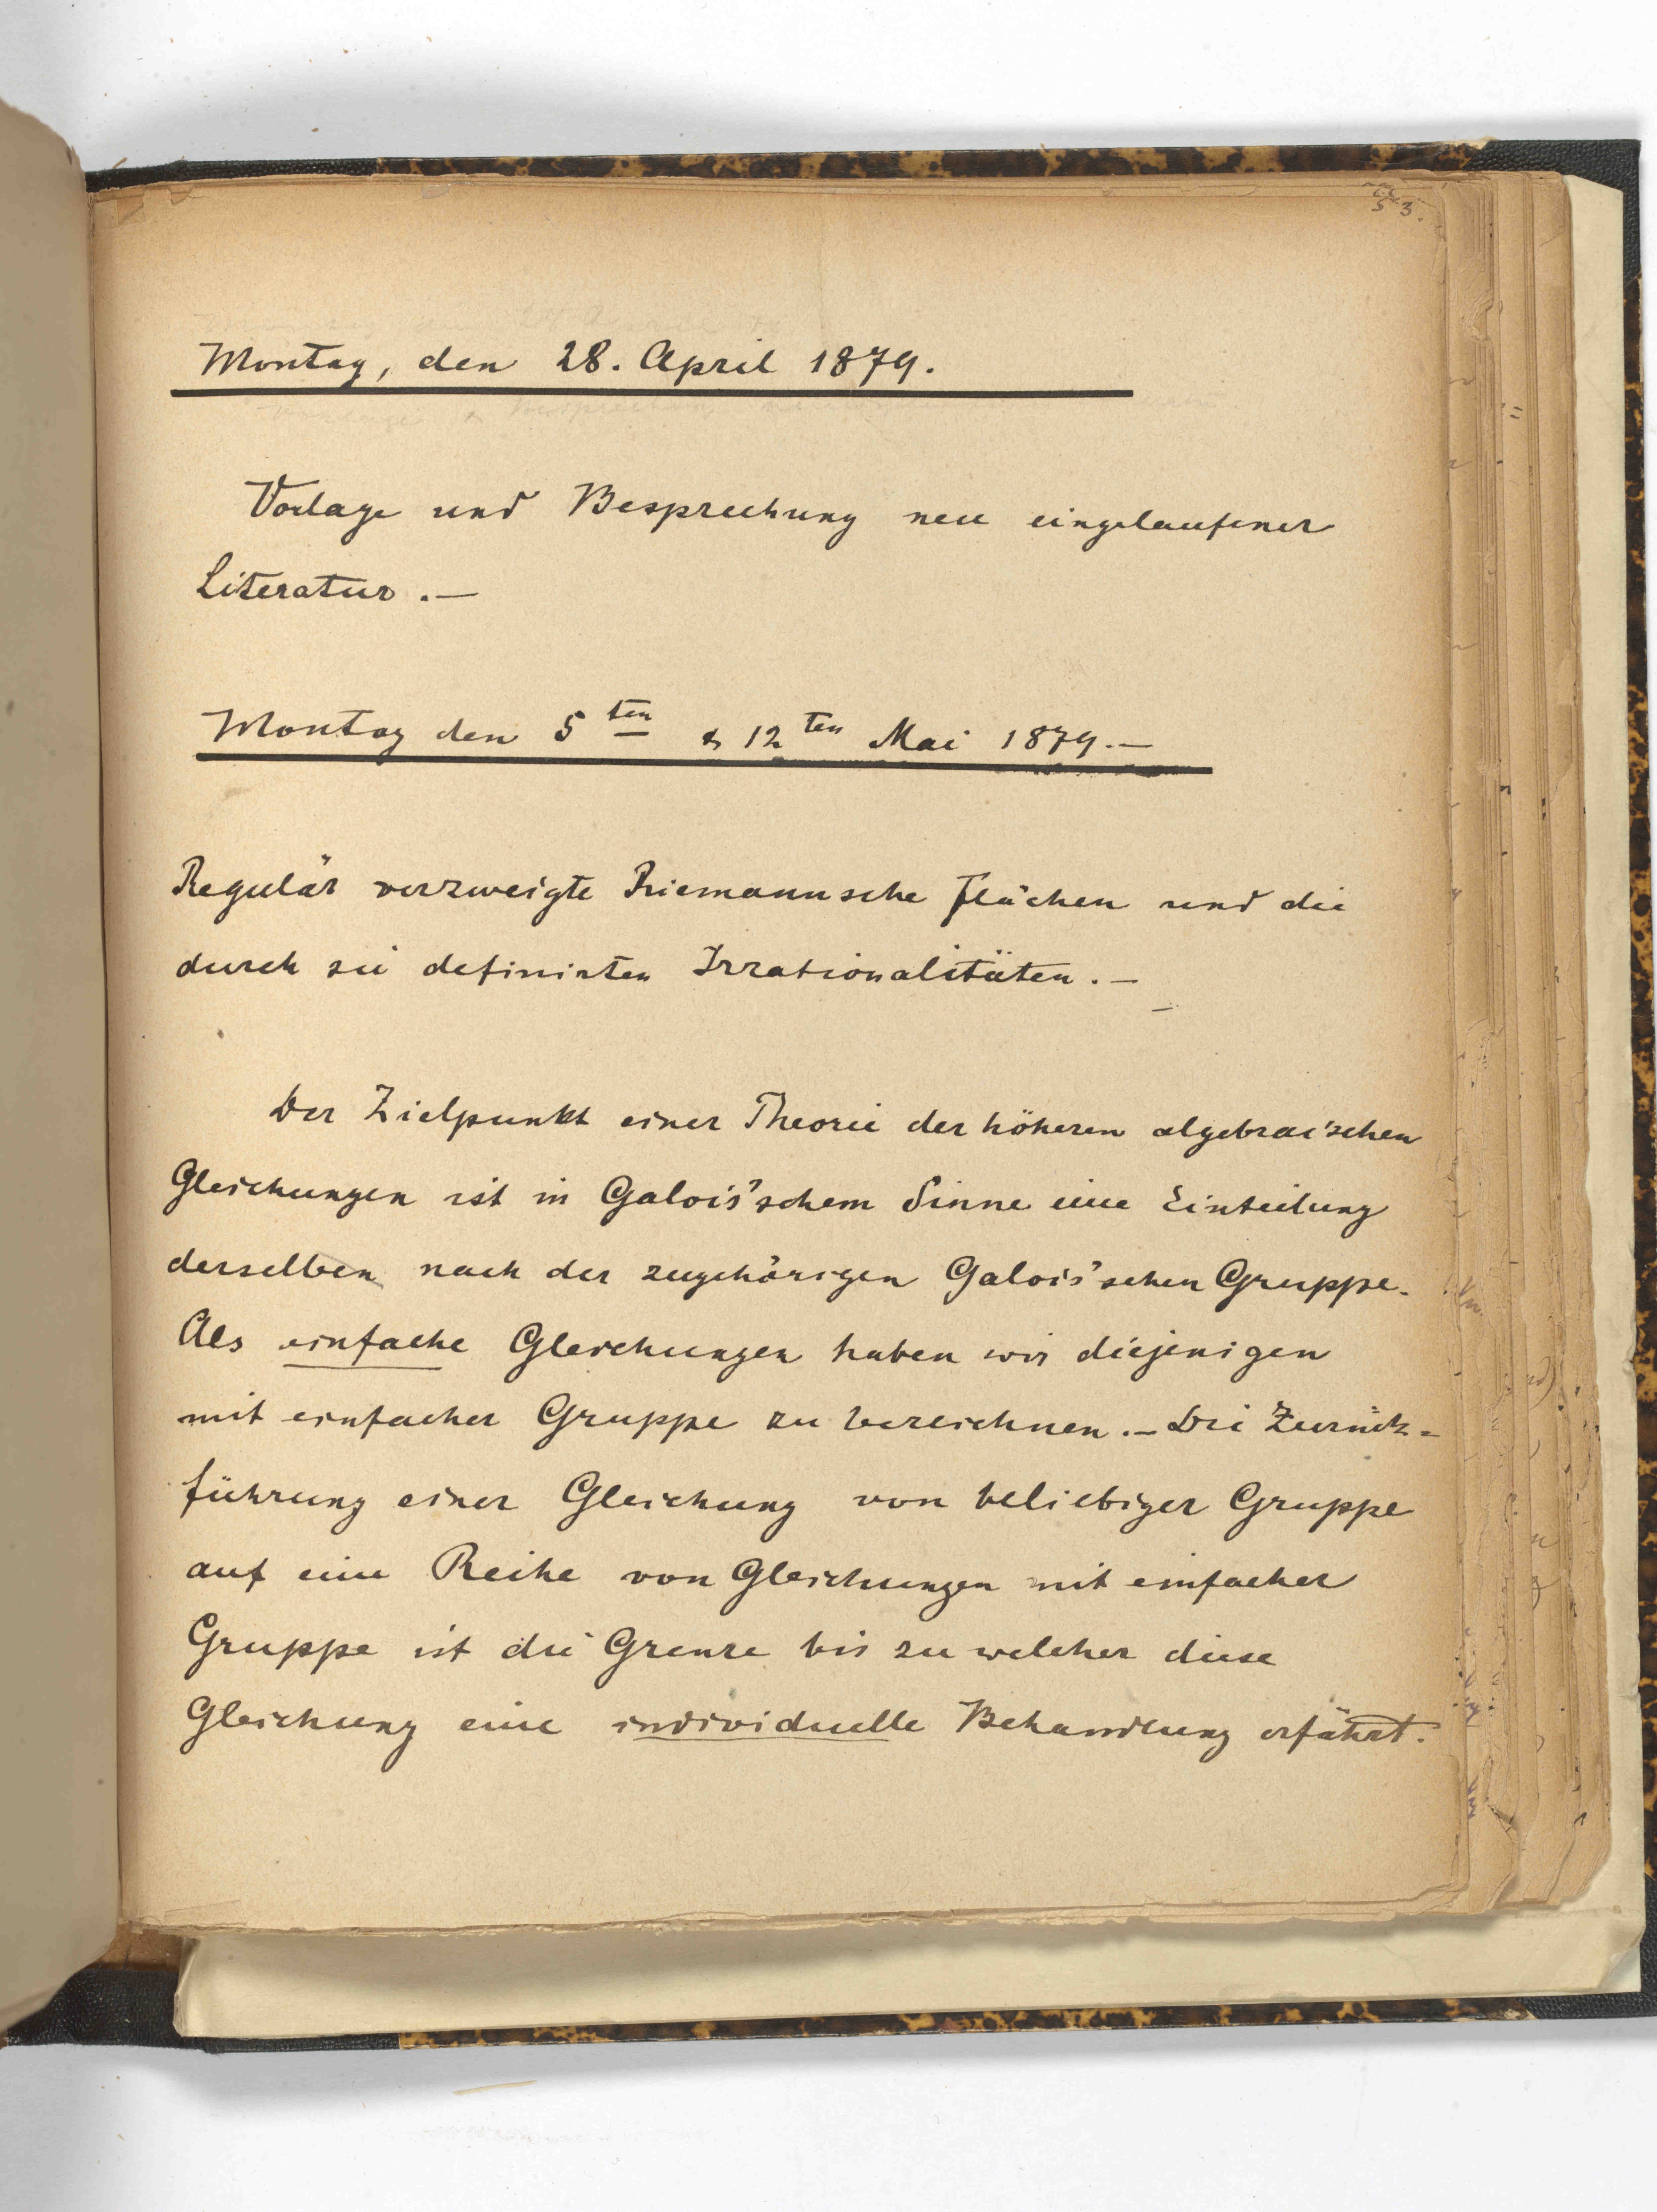 53.
Montag, den 28. April 1879.
Vorlage und Besprechung neu eingelaufener
Literatur.—
Montag den 5ten & 12ten Mai 1879.—
Regulär verzweigte Riemannsche Flächen und die
durch sie definirten Irrationalitäten.—
Der Zielpunkt einer Theorie der höheren algebrai'schen
Gleichungen ist in Galois'schem Sinne eine Einteilung
derselben nach der zugehörigen Galois'schen Gruppe.
Als einfache Gleichungen haben wir diejenigen
mit einfacher Gruppe zu bezeichnen.— Die Zurück=
führung einer Gleichung von beliebiger Gruppe
auf eine Reihe von Gleichungen mit einfacher
Gruppe ist die Grenze bis zu welcher diese
Gleichung eine individuelle Behandlung erfährt.